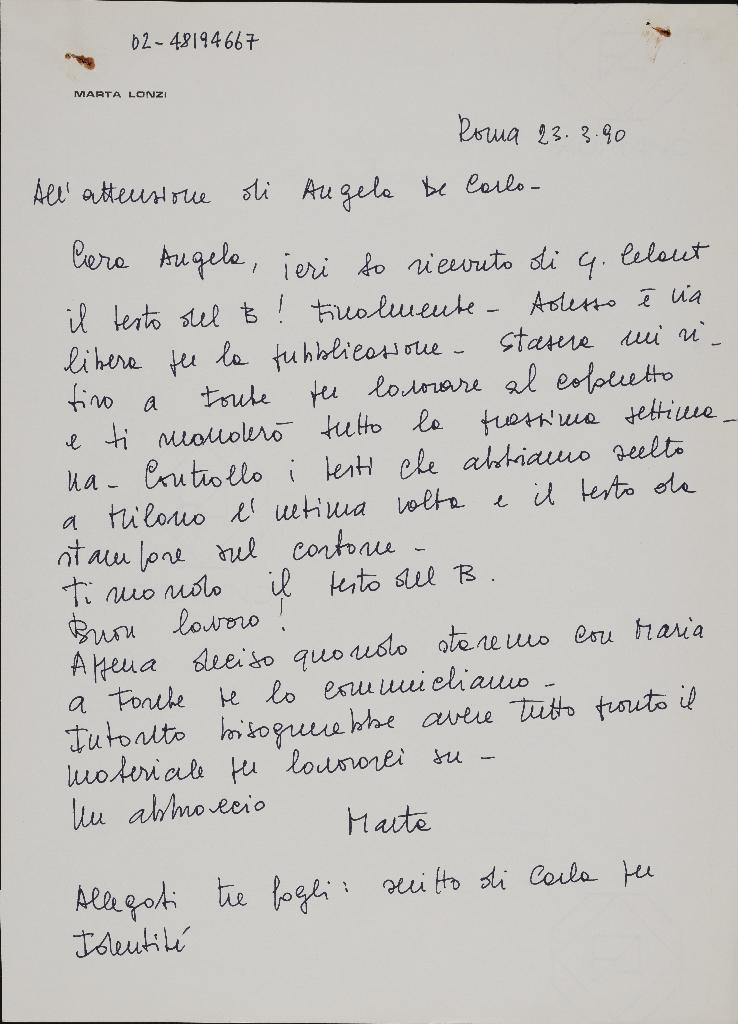 02-48194667
MARTA LONZI
Roma 23.3.90
All'attenzione di Angela De Carlo-
Cara Angela, ieri ho ricevuto di G. Celant
il testo del B! Finalmente - Adesso è via
libera per la pubblicazione - Stasera mi ri-
tiro a per lavorare al
e ti manderò tutto la prossima settima-
na - Controllo i testi che abbiamo scelto
a Milano l'ultima volta e il testo da
stampare sul cartone -
Ti mando il testo del B.
Buon lavoro!
Appena deciso quando staremo con Maria
a te lo comunichiamo -
Intanto bisognerebbe avere tutto pronto il
materiale per lavorarci su -
Un abbraccio
Marta
Allegati tre fogli: scritto di Carla per
Identité